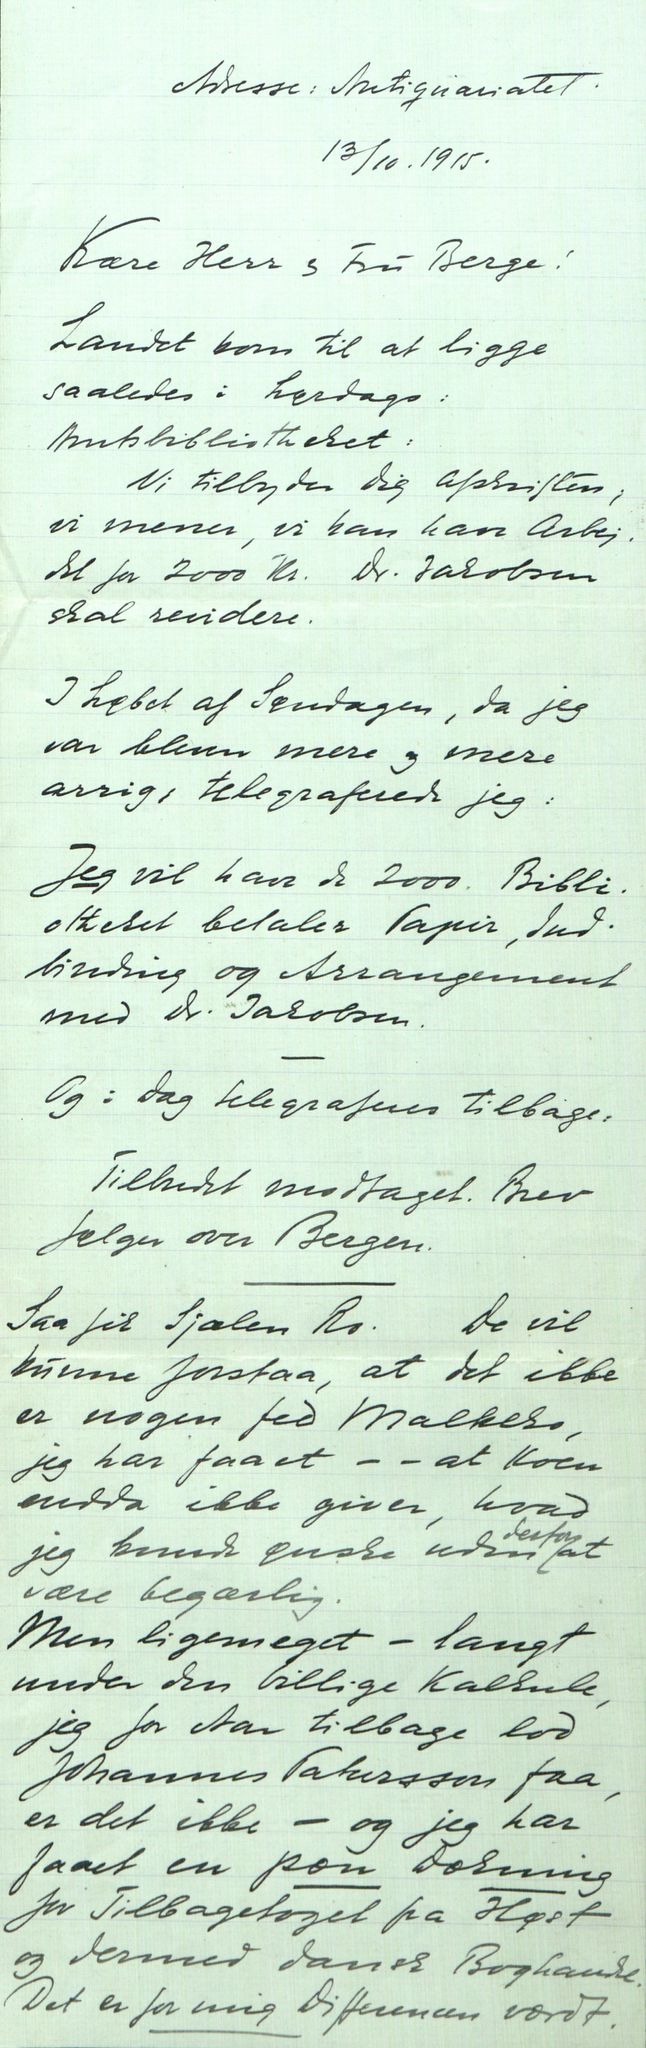 Adresse: Antiquariatet.
13/10. 1915.
Kære Herr & Fru Berge!
Landet kom til at ligge
saaledes i Lørdags:
Amtsbibliotheket:
Vi tilbyder Dig Afskriften;
vi mener, vi kan have Arbej-
det for 2000 Kr. Dr. Jakobsen
skal revidere.
I Løbet af Søndagen, da jeg
var bleven mere og mere
arrig, telegraferede jeg:
Jeg vil have de 2000. Bibli-
otheket betaler Papir, Ind-
binding og Arrangement
med Dr. Jakobsen.
Og i Dag telegraferes tilbage:
Tilbudet modtaget. Brev
følger over Bergen.
Saa fik Sjælen Ro. De vil
kunne forstaa, at det ikke
er nogen fed Malkeko,
jeg har faaet - - at Koen
endda ikke giver, hvad
jeg kunde ønske uden derfor at
være begærlig.
Men ligemeget - langt
under den billige Kalkule,
jeg for Aar tilbage lod
Johannes Patursson faa,
er det ikke - og jeg har
faaet en pæn Dækning
for Tilbagetoget fra Høst
og dermed dansk Boghandel.
Det er for mig Differencen værdt.